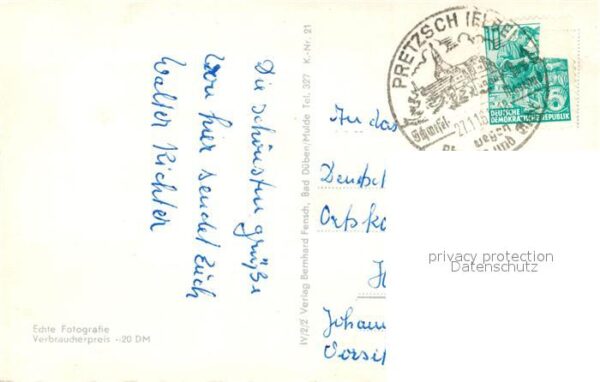 Die schönsten grüße
von hier sendet Euch
Walter Richter
Echte Fotografie
Verbraucherpreis -·20 DM
IV/2/2 Verlag Bernhard Fensch, Bad Düben/Mulde Tel. 327 K.-Nr. 21
PRETZSCH (ELBE)
27.1.
DEUTSCHE
DEMOKRATISCHE REPUBLIK
5
An das
Deutsch
Ortsko
Johann
Vorsit
privacy protection
Datenschutz